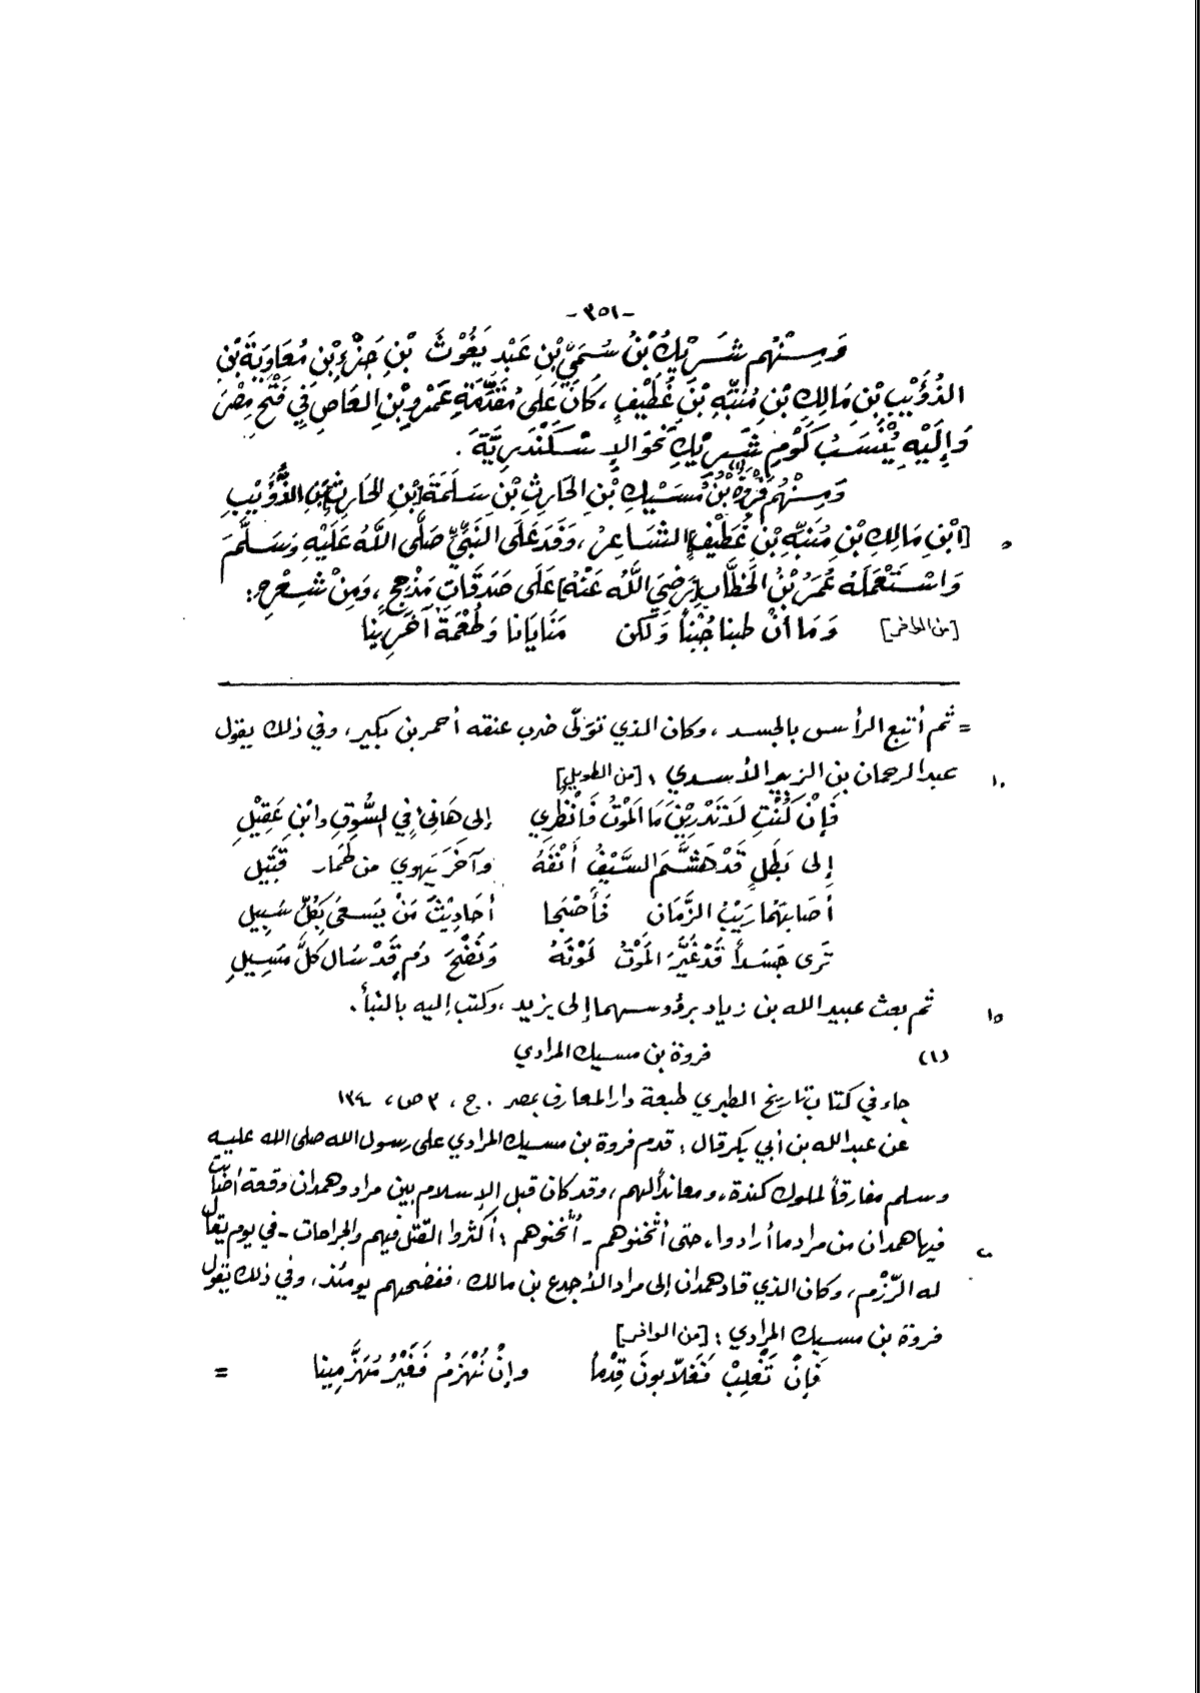 -٣٥١-
وَمِنْهُم شَرِيْكُ بْنُ سُمَيِّ بْنِ عَبْدِ يَغُوْثَ بْنِ جَزْءِ بْنِ مُعَاوِيَةَ بْنِ
الذُّؤَيْبِ بْنِ مَالِكِ بْنِ مُنَبِّهِ بْنِ غُطَيْفٍ، كَانَ عَلَى مُقَدِّمَةِ عَمْرِو بْنِ العَاصِ فِي فَتْحِ مِصْرَ
وَإِلَيْهِ يُنْسَبُ كَوْمُ شَرِيْكٍ نَحْوَ الإِسْكَنْدَرِيَّةَ.
وَمِنْهُم فَرْوَةُ(١) بْنُ مُسَيْكِ بْنِ الحَارِثِ بْنِ سَلَمَةَ [بْنِ الحَارِثِ] بْنِ الذُّؤَيْبِ
٥ [ابْنِ مَالِكِ بْنِ مُنَبِّهِ بْنِ غُطَيْفٍ] الشَّاعِرُ، وَفَدَ عَلَى النَّبِيِّ صَلَّى اللَّهُ عَلَيْهِ وَسَلَّمَ
وَاسْتَعْمَلَهُ عُمَرُ بْنُ الخَطَّابِ [رَضِيَ اللَّهُ عَنْهُ] عَلَى صَدَقَاتِ مَذْحِجٍ، وَمِنْ شِعْرِهِ:
[من الوافر] وَمَا أنْ طبنا جُبْناً وَلكن مَنَايَانا وَطُعْمَةُ آخَرِينَا
= ثم أتبع الرأس بالجسد، وكان الذي تَوَلّى ضرب عنقه أحمر بن بكير، وفي ذلك يقول
١٠ عبد الرحمان بن الزبير الأسدي: [من الطويل]
فَإِنْ كُنْتِ لَا تَدْرِيْنَ مَا المَوْتُ فَانْظُرِي إلى هَانِئٍ فِي السُّوقِ وابْنِ عَقِيْلِ
إلى بَطَلٍ قَدْ هَشَّمَ السَّيْفُ أَنْفَهُ وآخَرَ يَهوي من طَمَار قَتِيل
أصَابَهُمَا رَيْبُ الزَّمَان فَأَصْبَحَا أحَادِيْثَ مَنْ يَسعَى بِكُلِّ سَبِيل
تَرى جَسَداً قَدْ غَيَّرَ المَوْتُ لَوْنَهُ وَنَضْحَ دَمٍ قَدْ سَال كلَّ مَسِيلِ
١٥ ثم بعث عبيد الله بن زياد برؤوسهما إلى يزيد، وكتب إليه بالنبأ.
(١) فروة بن مسيك المرادي
جاء في كتاب تاريخ الطبري طبعة دار المعارف بمصر. ج، ٣ ص، ١٣٤
عن عبد الله بن أبي بكر قال: قدم فروة بن مسيك المرادي على رسول الله صلى الله عليه
وسلم مفارقاً لملوك كندة، ومعانداً لهم، وقد كان قبل الإسلام بين مراد وهمدان وقعة أصابت
٢٠ فيها همدان من مراد ما أرادوا، حتى أثخنوهم - أثخنوهم: أكثروا القتل فيهم والجراحات - في يوم يقال
له الرَّزْم، وكان الذي قاد همدان إلى مراد الأجدع بن مالك، ففضحهم يومئذ، وفي ذلك يقول
فروة بن مسيك المرادي: [من الوافر]
فَإنْ نَغْلِبْ فَغَلّابونَ قِدْماً وإنْ نُهْزَمْ فَغَيْرُ مُهَزَّمِينا =